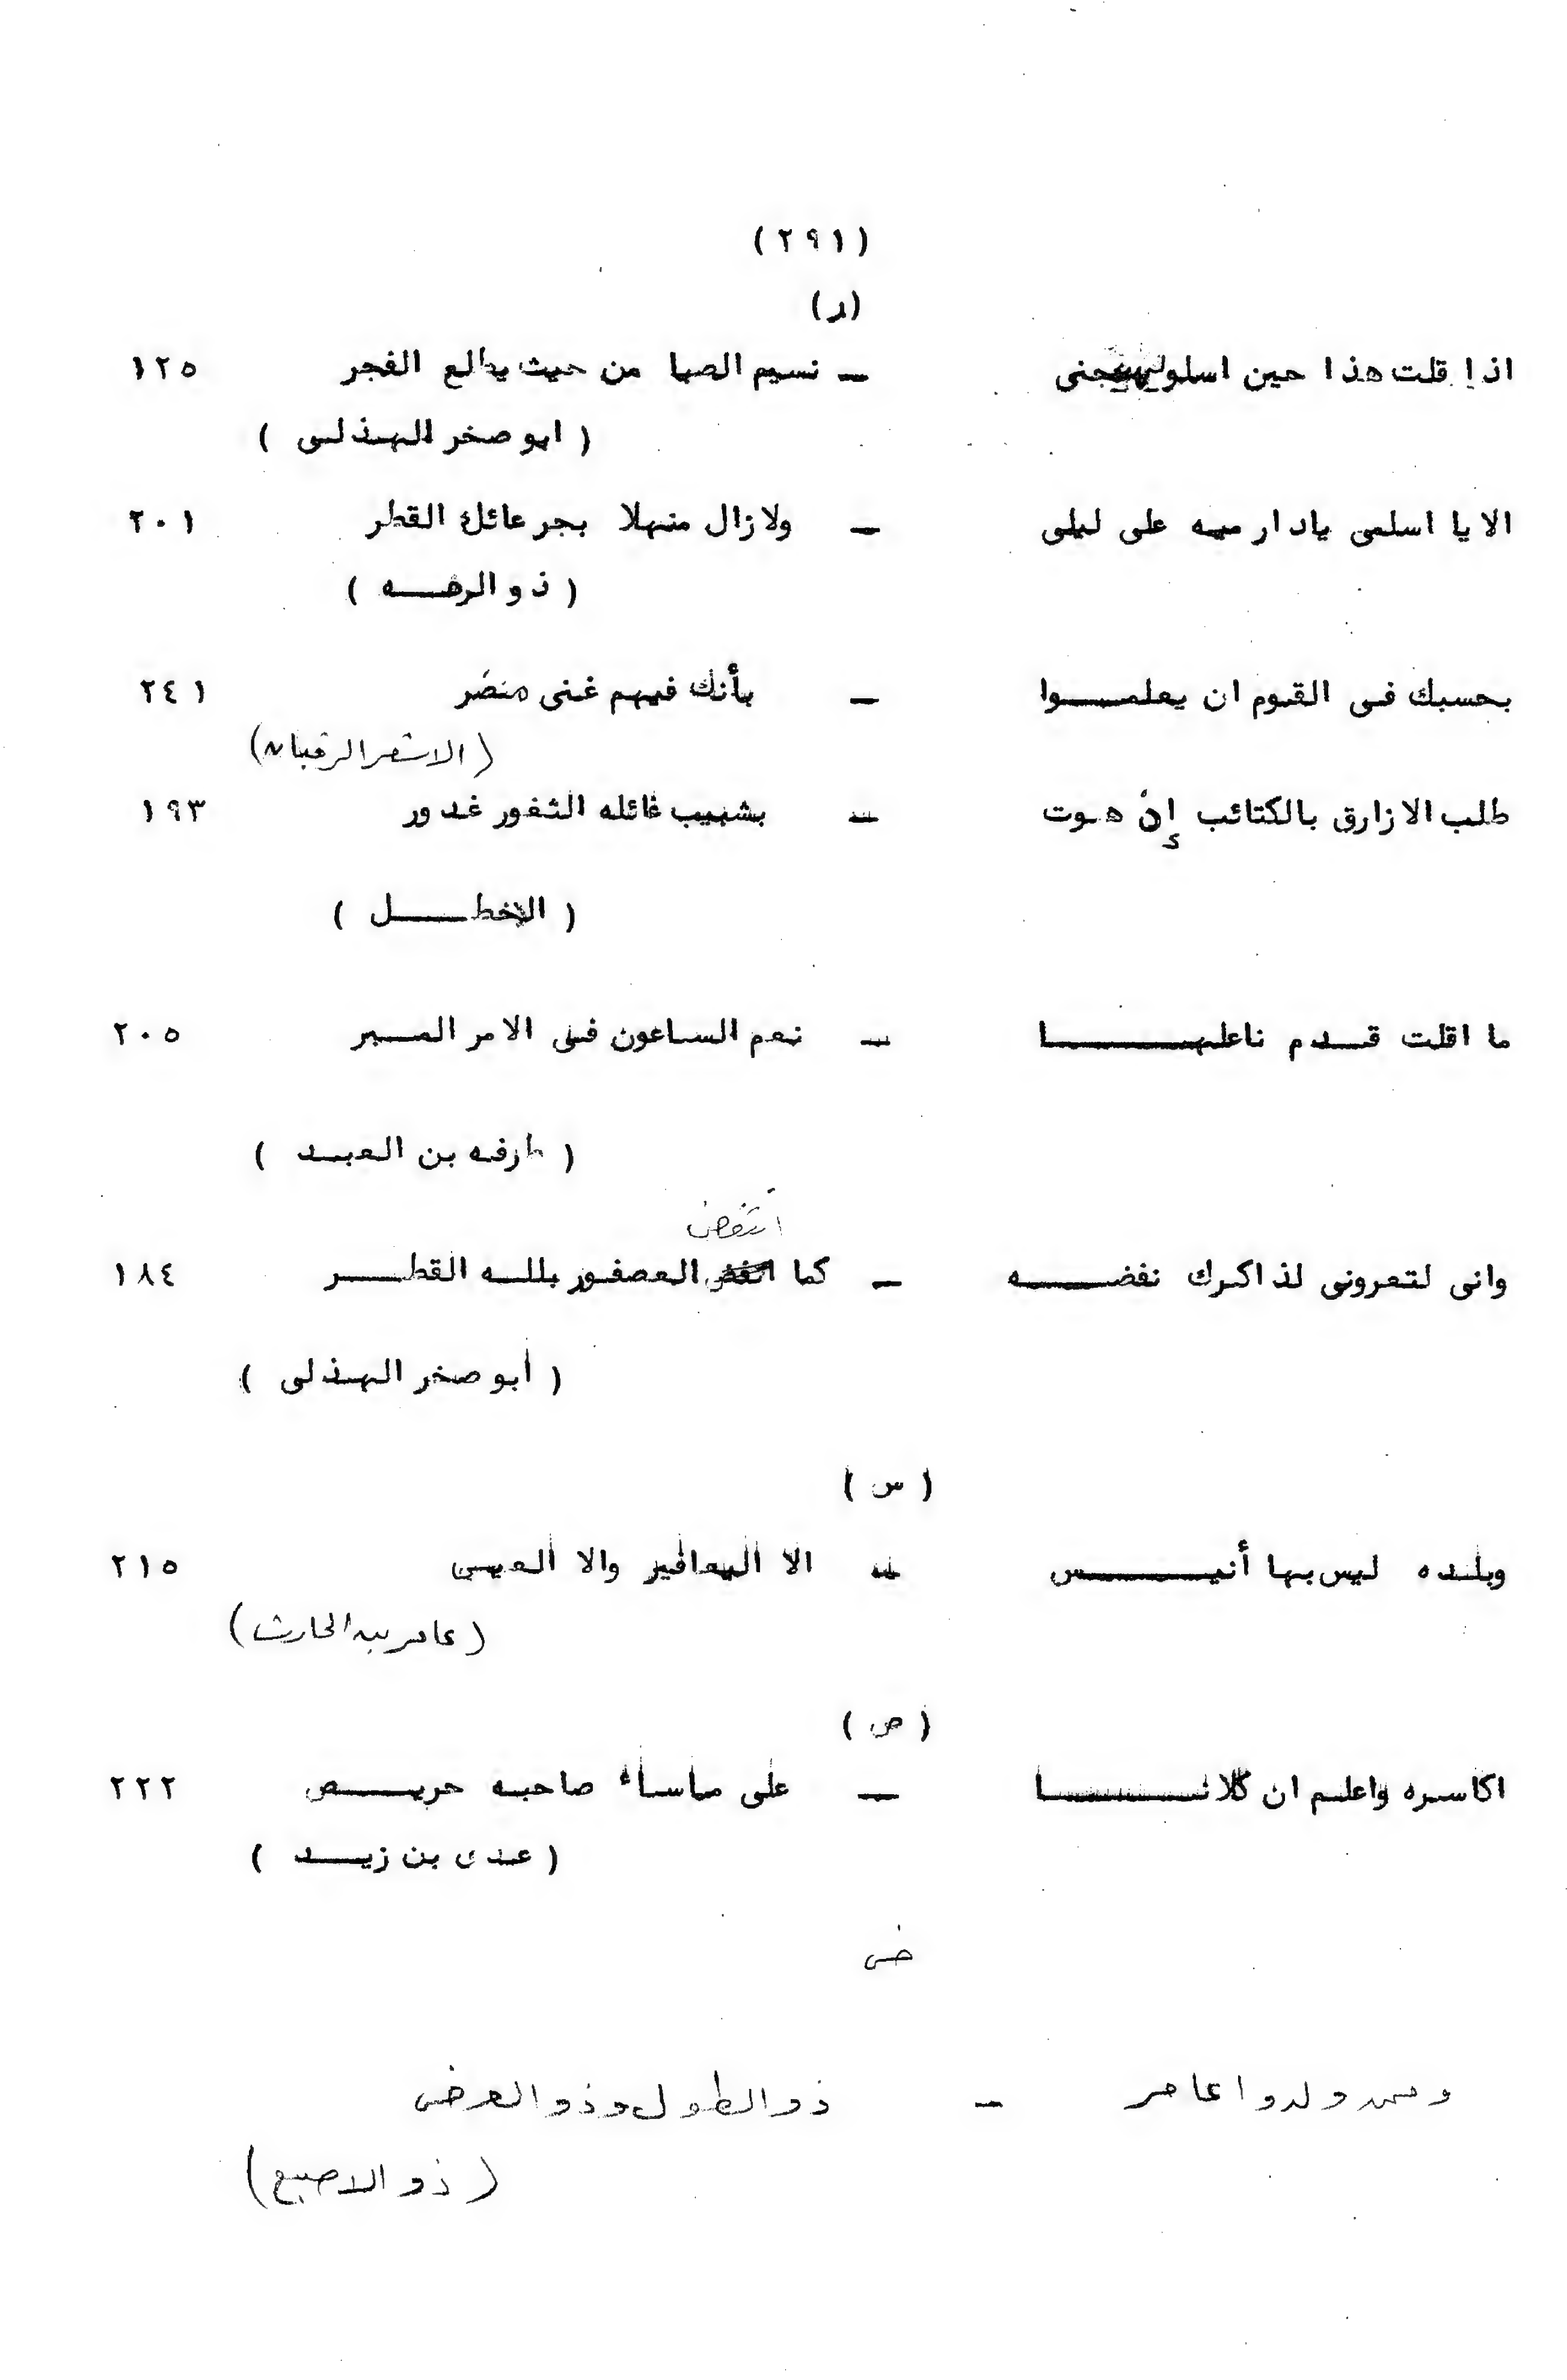 (٢٩١)
(ر)
اذا قلت هذا حين اسلو يهيجنى — نسيم الصبا من حيث يطالع الفجر ١٢٥
( ابو صخر الهذلى )
الا يا اسلمى يادار ميه على ليلى — ولا زال منهلا بجر عائك القطر ٢٠١
( ذو الرمــه )
بحسبك فى القوم ان يعلمــوا — بأنك فيهم غنى مضر ٢٤١
(الاشعر الرقبان)
طلب الازارق بالكتائب إن هوت — بشبيب غائله الثغور غدور ١٩٣
( الاخطــل )
ما اقلت قدم ناعلهــا — نعم الساعون فى الامر المبر ٢٠٥
( طرفه بن العبد )
انتفض
وانى لتعرونى لذاكرك نفضــه — كما العصفور بلله القطــر ١٨٤
( أبو صخر الهذلى )
( س )
وبلده ليس بها أنيــس — الا اليعافير والا العيس ٢١٥
(عامر بن الحارث)
( ص )
اكاسره واعلم ان كلانــا — على ماساء صاحبه حريــص ٢٢٢
( عدى بن زيــد )
ض
وممن ولدوا عامر — ذو الطول وذو العرض
(ذو الاصبع)